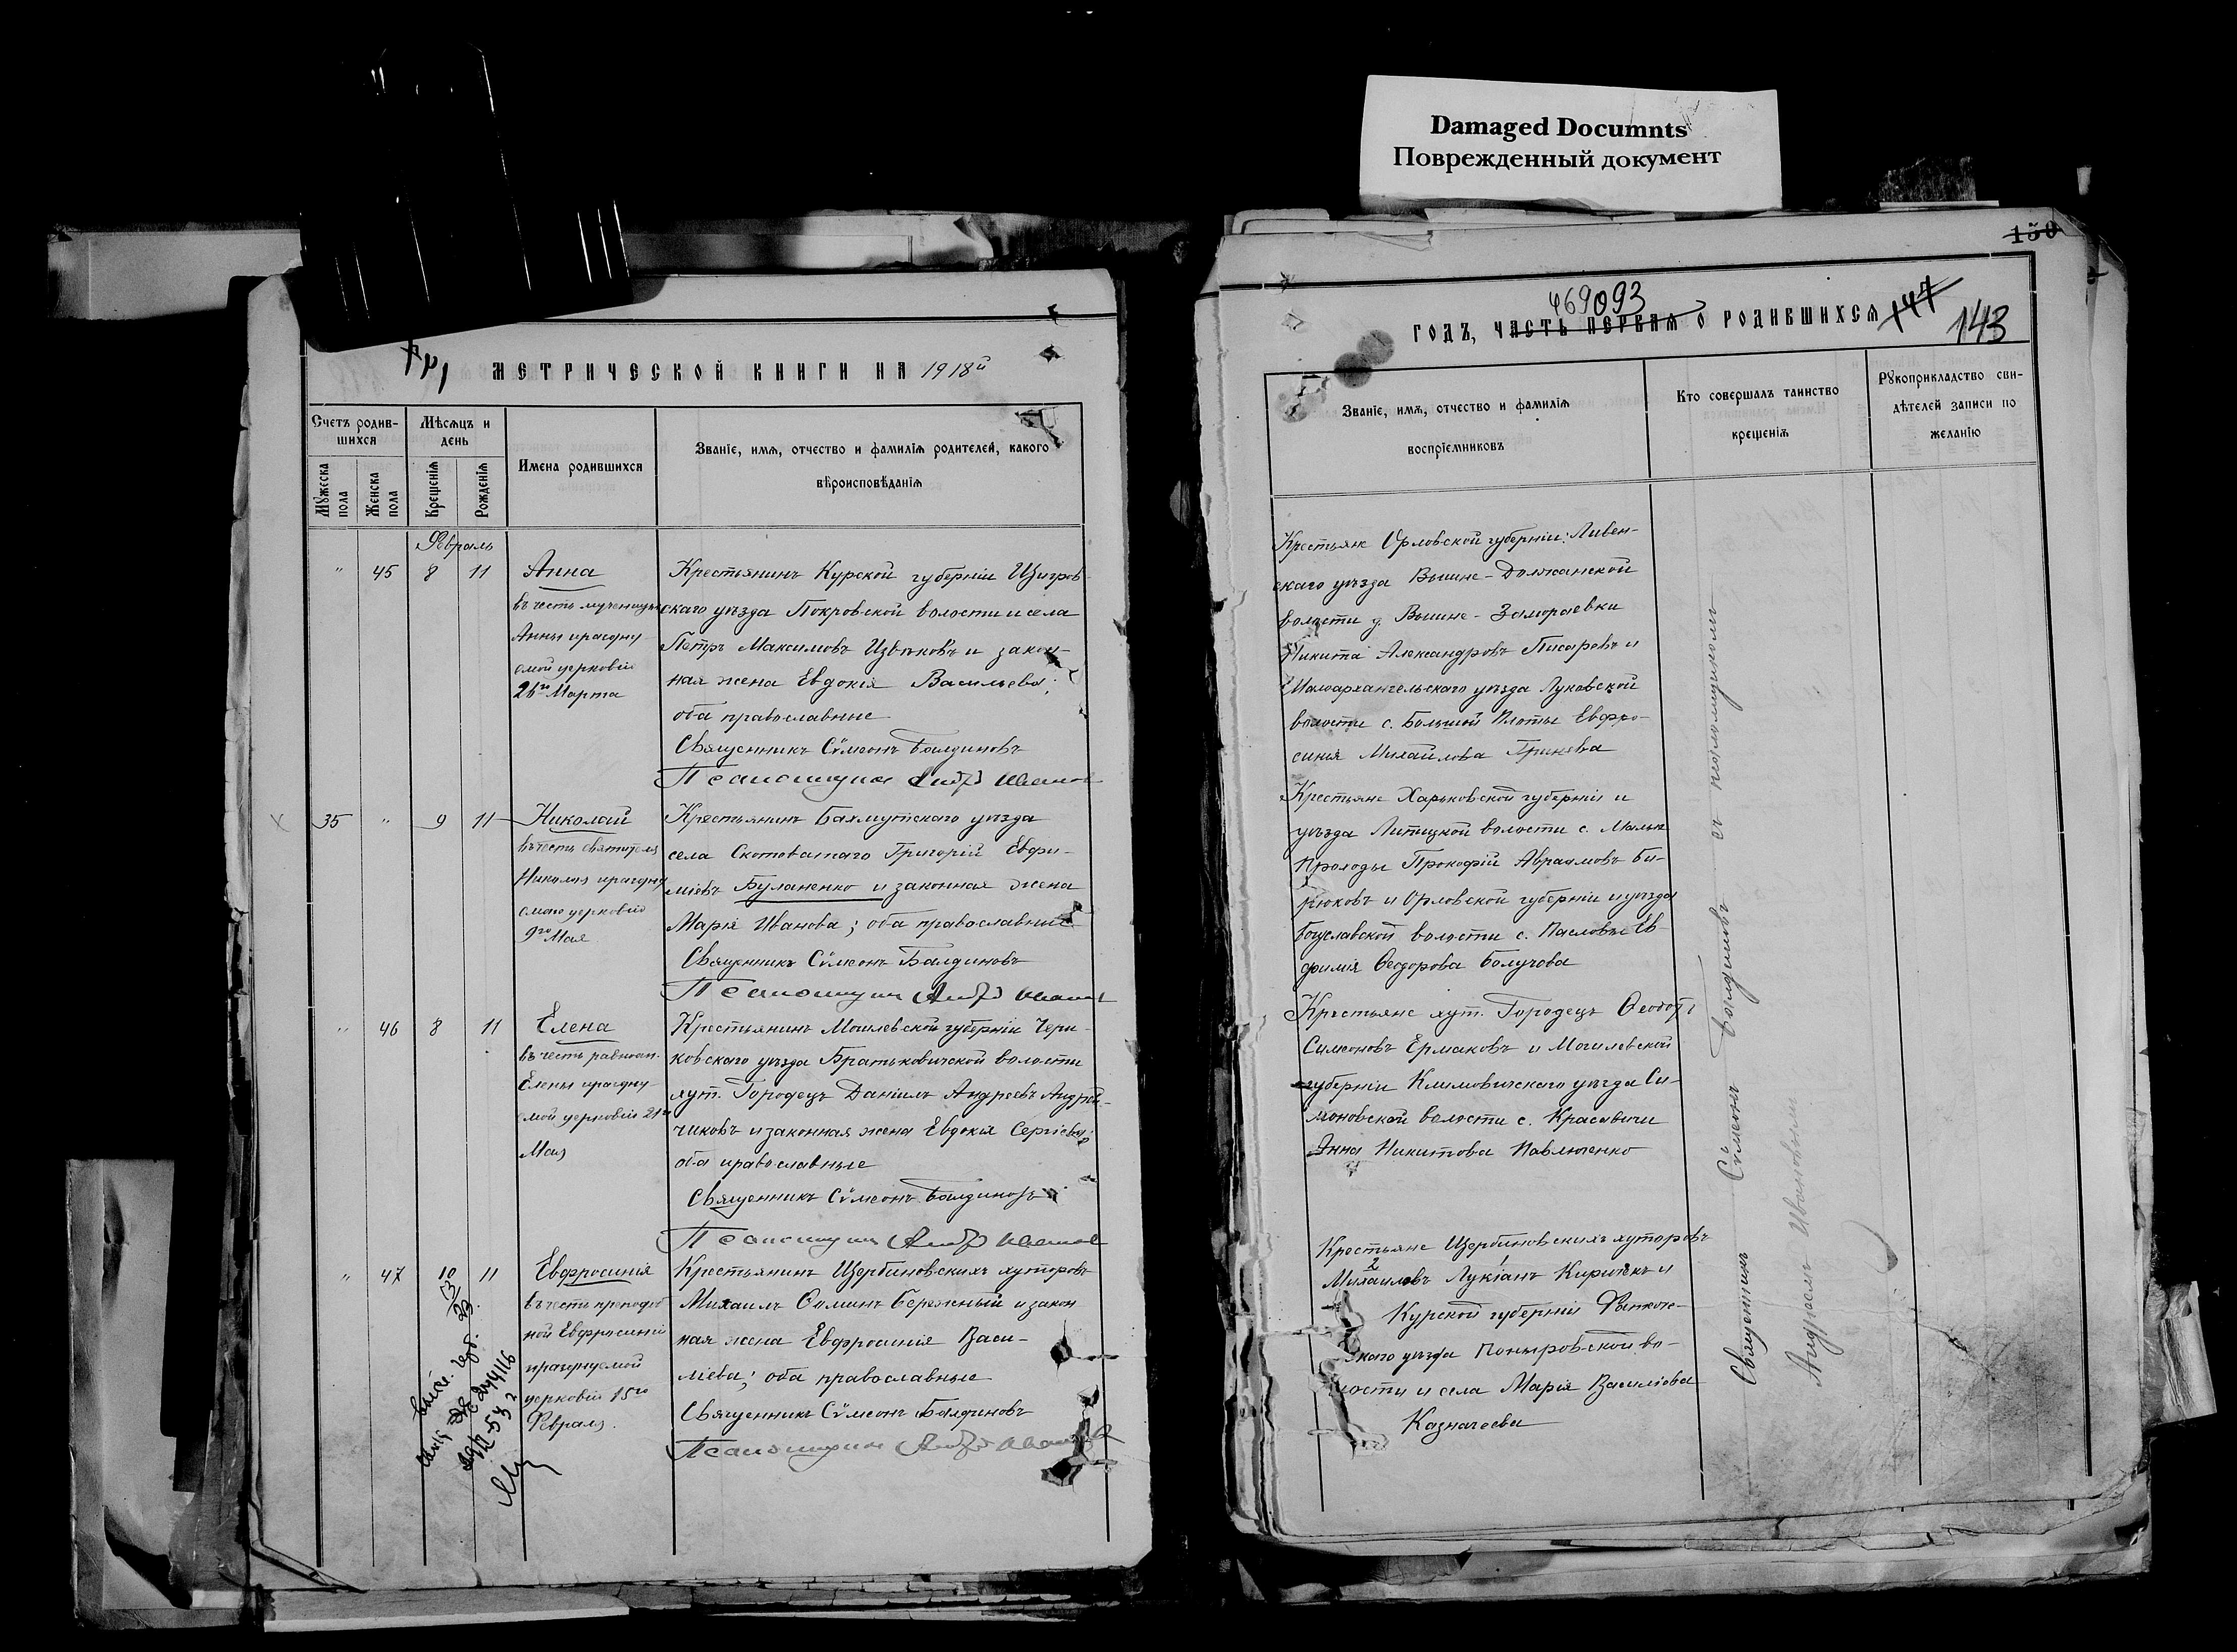 Damaged Documnts
Поврежденный документ
МЕТРИЧЕСКОЙ КНИГИ НА 1918й
Счетъ родив-
шихся
Мужеска пола
Женска пола
Мѣсяцъ и день
Крещенія
Рожденія
Имена родившихся
Званіе, имя, отчество и фамилія родителей, какого
вѣроисповѣданія
Февраль
" 45 8 11
Анна
въ честь мученицы
Анны праздну-
емой церковію
26го Марта
Крестьянинъ Курской губерніи Щигров-
скаго уѣзда Покровской волости и села
Петръ Максимовъ Извѣковъ и закон-
ная жена Евдокія Васильева;
оба православные
Священникъ Сѵмеонъ Балдиновъ
Псаломщикъ
35 " 9 11
Николай
въ честь святителя
Николая праздну
емаго церковію
9го Мая
Крестьянинъ Бахмутскаго уѣзда
села Скотоватаго Григорій Евфи-
міевъ Буланенко и законная жена
Марія Иванова; оба православные
Священникъ Сѵмеонъ Балдиновъ
Псаломщикъ
" 46 8 11
Елена
въ честь равноап.
Елены праздну-
емой церковію 21го
Мая
Крестьянинъ Могилевской губерніи Чери-
ковскаго уѣзда Братьковичской волости
хут. Городецъ Даніилъ Андреевъ Андрей-
чиковъ и законная жена Евдокія Сергіева;
оба православные
Священникъ Сѵмеонъ Балдиновъ
Псаломщикъ
" 47 10 11
Евфросинія
въ честь преподоб
ной Евфросиніи
празднуемой
церковію 15го
Февраля.
Крестьянинъ Щербиновскихъ хуторовъ
Михаилъ Ѳоминъ Бережный и закон
ная жена Евфросинія Васи-
ліева; оба православные
Священникъ Сѵмеонъ Балдиновъ
Псаломщикъ
150
469093
ГОДЪ, ЧАСТЬ ПЕРВАЯ О РОДИВШИХСЯ
147
143
Званіе, имя, отчество и фамилія
воспріемниковъ
Кто совершалъ таинство
крещенія
Рукоприкладство сви-
дѣтелей записи по
желанію
Крестьяне Орловской губерніи: Ливен-
скаго уѣзда Вышне-Должанской
волости д. Вышне-Замораевки
Никита Александровъ Писаревъ и
Малоархангельскаго уѣзда Луковской
волости с. Большой Плоты Евфро-
синія Михаилова Гринева
Крестьяне Харьковской губерніи и
уѣзда Липицкой волости с. Малые
Проходы Прокофій Авраамовъ Би-
рюковъ и Орловской губерніи и уѣзда
Богуславской волости с. Пасловъ Ев-
фимія Ѳеодорова Болучова
Крестьяне хут. Городецъ Ѳеодоръ
Симеоновъ Ермаковъ и Могилевской
губерніи Климовичскаго уѣзда Си-
моновской волости с. Красавичи
Анна Никитова Павлюченко
Крестьяне Щербиновскихъ хуторовъ
Михаиловъ Лукіанъ Киричекъ и
Курской губерніи Фатеж-
скаго уѣзда Поныровской во-
лости и села Марія Василіева
Казначеева
Священникъ Сѵмеонъ Балдиновъ съ псаломщикомъ
Андреемъ Ивановымъ